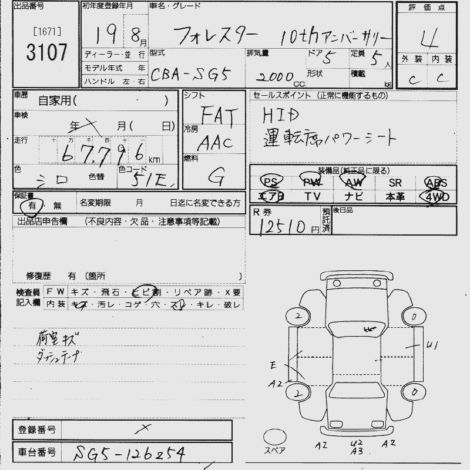 出品番号 初年度登録年月 車名・グレード 評価点
[1671]
3107
19 8月 フォレスター 10thアニバーサリー 4
ディーラー・並行 型式 排気量 ドア 定員 外装 内装
モデル年式 年 CBA-SG5 2000cc 形状 5 積載 5人 C C
ハンドル 左・右 kg
車歴 自家用( ) シフト FAT セールスポイント (正常に機能するもの)
車検 年 月(日) 冷房 AAC HID
走行 67,796km 運転席パワーシート
色 シロ 色替 色コード 51E 燃料 G
装備品(純正品に限る)
PS PW AW SR ABS
エアB TV ナビ 本革 4WD
保証書 有・無 名変期限 月 日迄に名変できる方
R券 12510円 預託済 後日品
出品店申告欄 (不良内容・欠品・注意事項等記載)
修復歴 有 (箇所 )
検査員記入欄 FW キズ・飛石・ヒビ割・リペア跡・X要
内装 キズ・汚レ・コゲ・穴・スレ・キレ・破レ
荷室キズ
ダッシュテープ
2 0
E U1
A2
2 0
スペア A2 U2 A2
A3
登録番号 ×
車台番号 SG5-126254